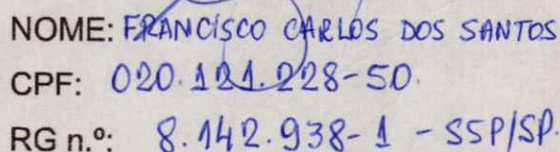 NOME: FRANCISCO CARLOS DOS SANTOS
CPF: 020.121.228-50.
RG n.º: 8.142.938-1 - SSP/SP.